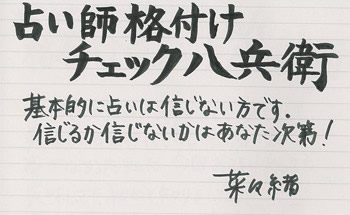 占い師格付け
チェック八兵衛
基本的に占いは信じない方です。
信じるか信じないかはあなた次第！
菜々緒